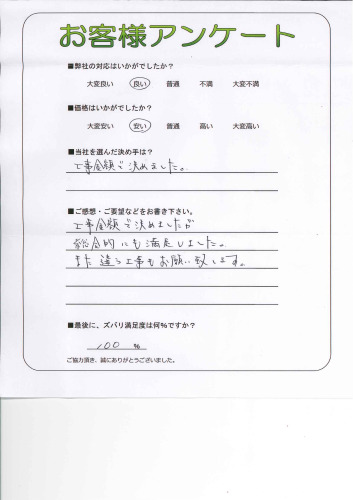 お客様アンケート
■弊社の対応はいかがでしたか?
大変良い 良い 普通 不満 大変不満
■価格はいかがでしたか?
大変安い 安い 普通 高い 大変高い
■当社を選んだ決め手は?
工事金額で決めました。
■ご感想・ご要望などをお書き下さい。
工事金額で決めましたが
総合的にも満足しました。
また違う工事もお願い致します。
■最後に、ズバリ満足度は何%ですか?
100 %
ご協力頂き、誠にありがとうございました。